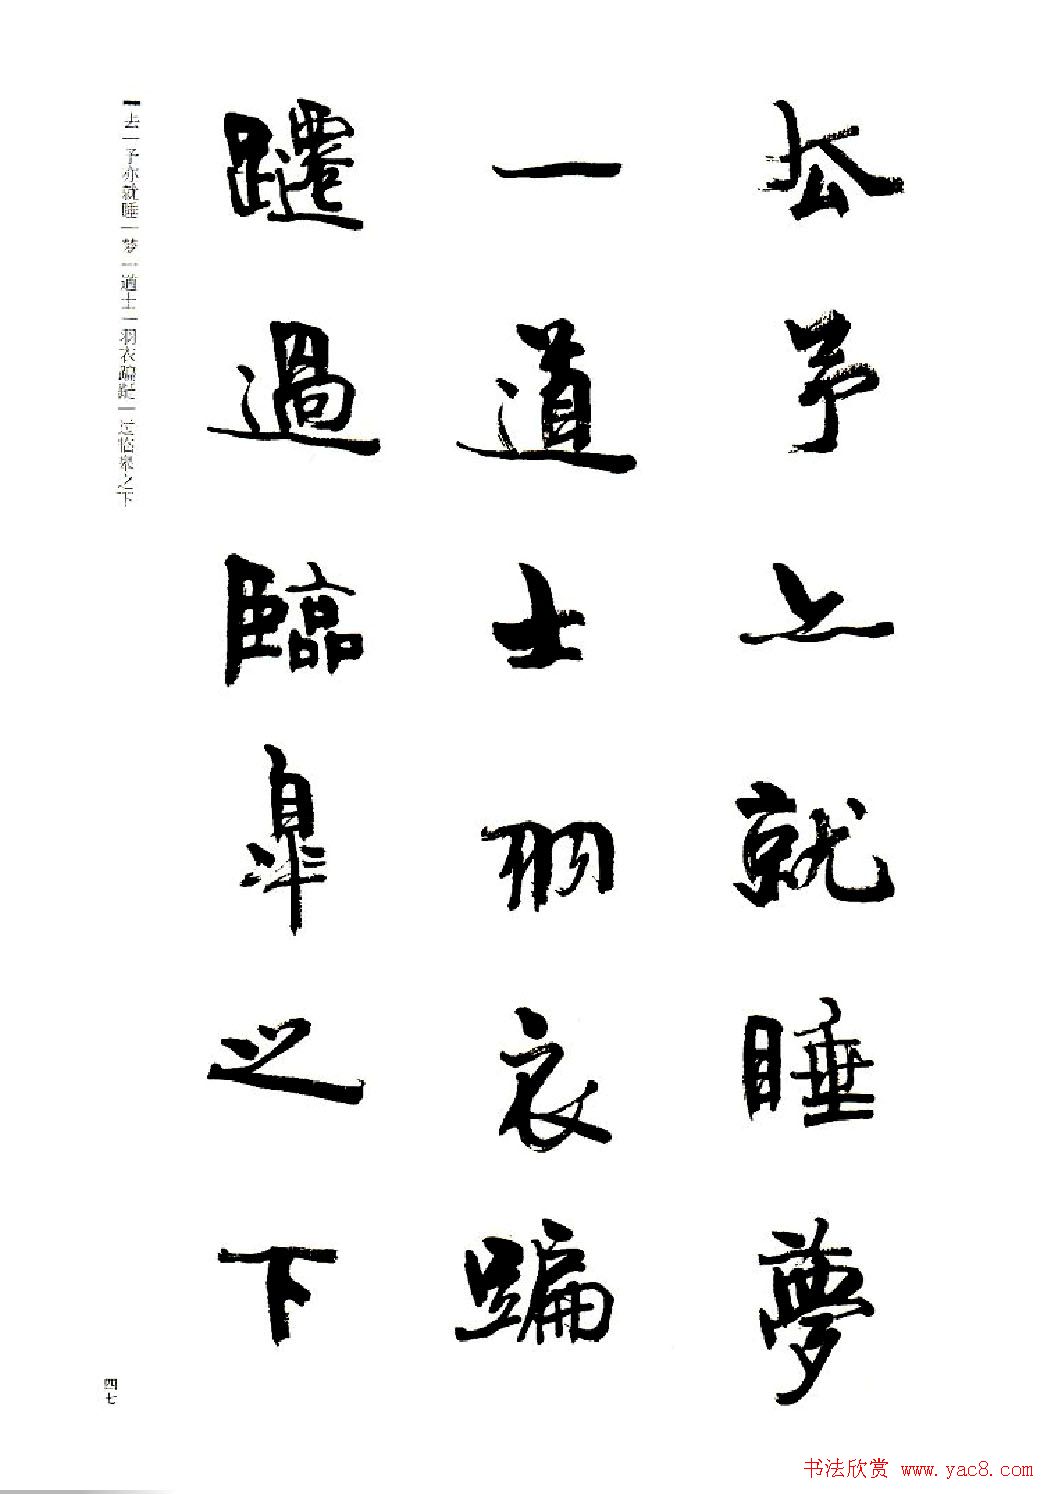 去予亦就睡夢
一道士羽衣蹁
躚過臨皋之下
去予亦就睡梦一道士羽衣蹁跹过临皋之下
四七
书法欣赏 www.yac8.com